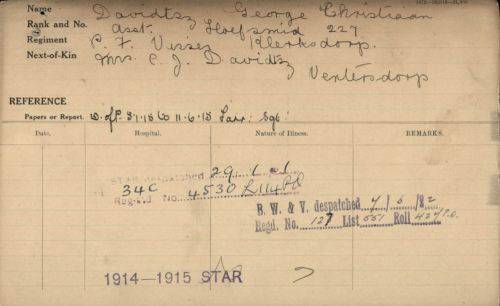 Name Davidtsz George Christiaan
Rank and No. Asst. Hoefsmid 227
Regiment P. F. Visser Klerksdorp.
Next-of-Kin Mrs C. J. Davidtsz
Ventersdorp
REFERENCE
Papers or Report. D. of P. 3.1.15 to 11.6.15
Date. Hospital. Nature of Illness. REMARKS.
STAR despatched 29.1.
34C
Regtl. No. 4530
B. W. & V. despatched
Regd. No. 127 List 551 Roll
1914—1915 STAR